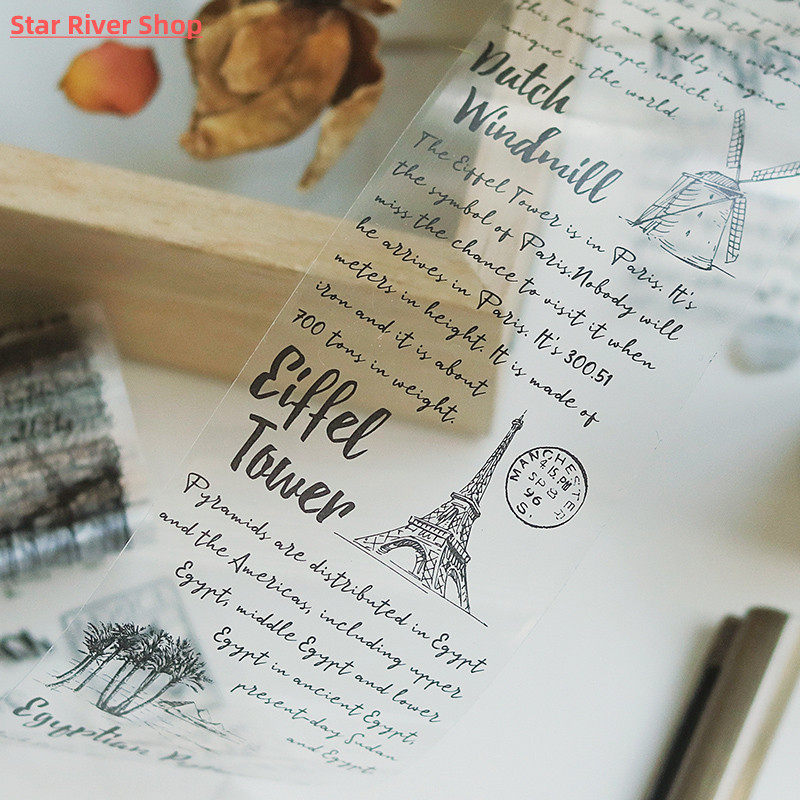 Star River Shop
this landscape, which is
unique in the world.
Dutch
Windmill
The Eiffel Tower is in Paris. It's
the symbol of Paris.Nobody will
miss the chance to visit it when
he arrives in Paris. It's 300.51
meters in height. It is made of
iron and it is about
700 tons in weight.
Eiffel
Tower
MANCHESTER
4.15.PM
SP 8
96
S.
Pyramids are distributed in Egypt
and the Americas, including upper
Egypt, middle Egypt and lower
Egypt in ancient Egypt,
present-day Sudan
and Egypt.
Egyptian